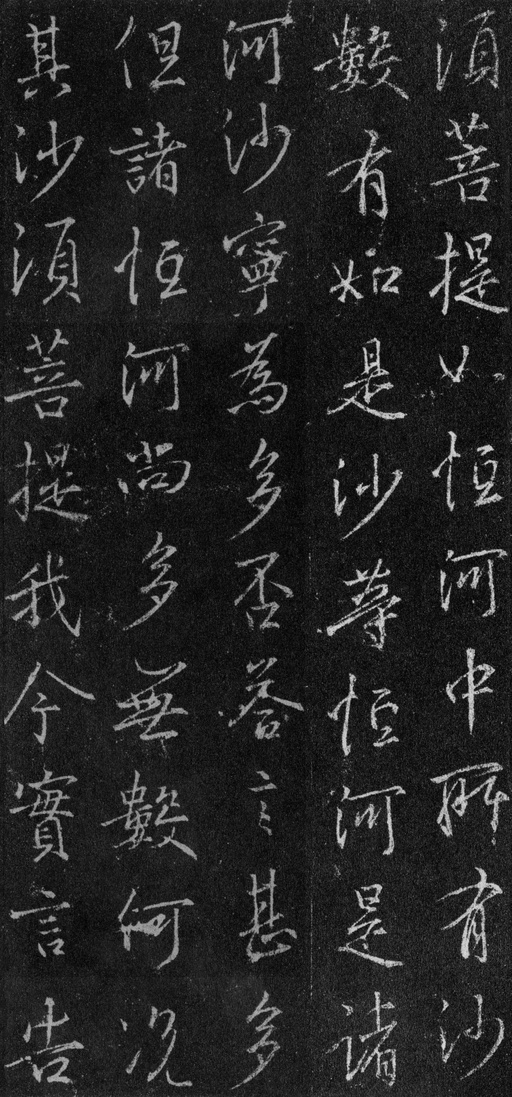 須菩提如恒河中所有沙
數有如是沙等恒河是諸
河沙寧為多否荅言甚多
但諸恒河尚多無數何況
其沙須菩提我今實言告